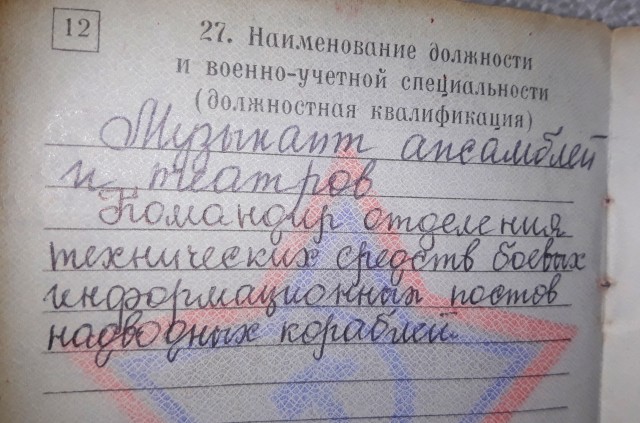 12
27. Наименование должности
и военно-учетной специальности
(должностная квалификация)
Музыкант ансамблей
и театров
Командир отделения
технических средств боевых
информационных постов
надводных кораблей.